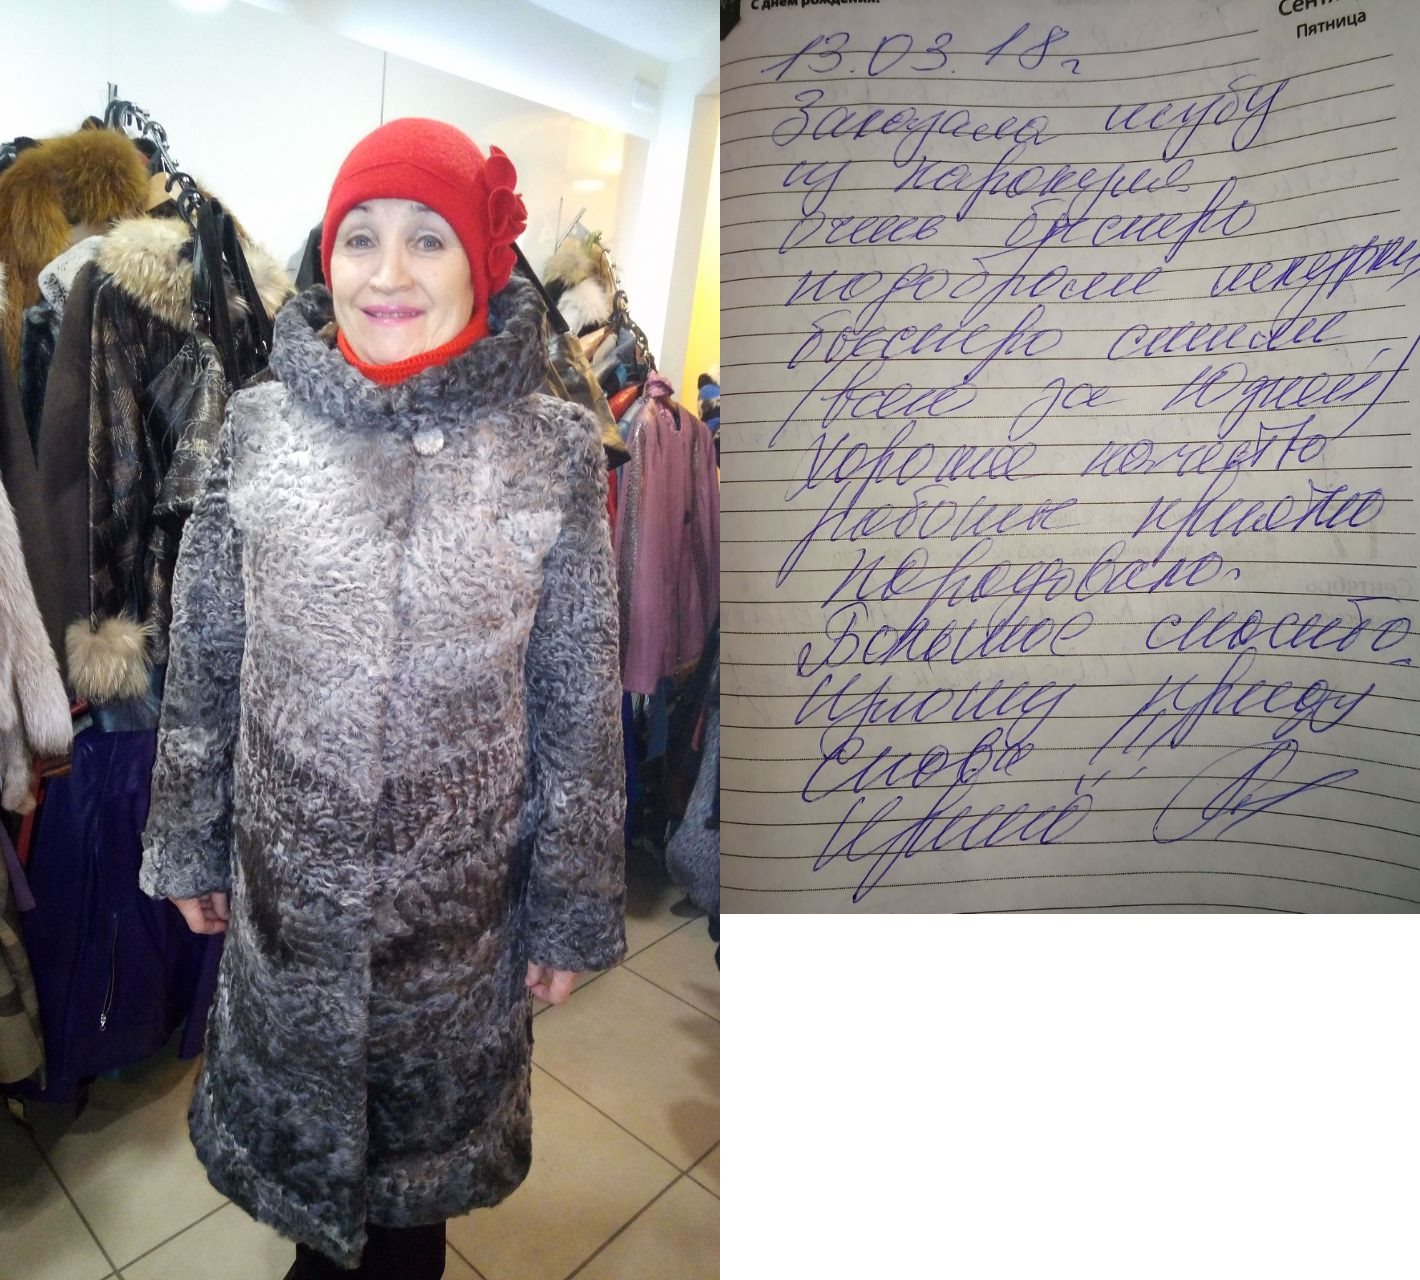 С днем рождения!
Пятница
13.03.18г
Заказала шубу
из каракуля.
очень быстро
подобрали шкурки,
быстро сшили
(всего за 10 дней)
Хорошее качество
Работы приятно
порадовало.
Большое спасибо.
приду
Снова!!!